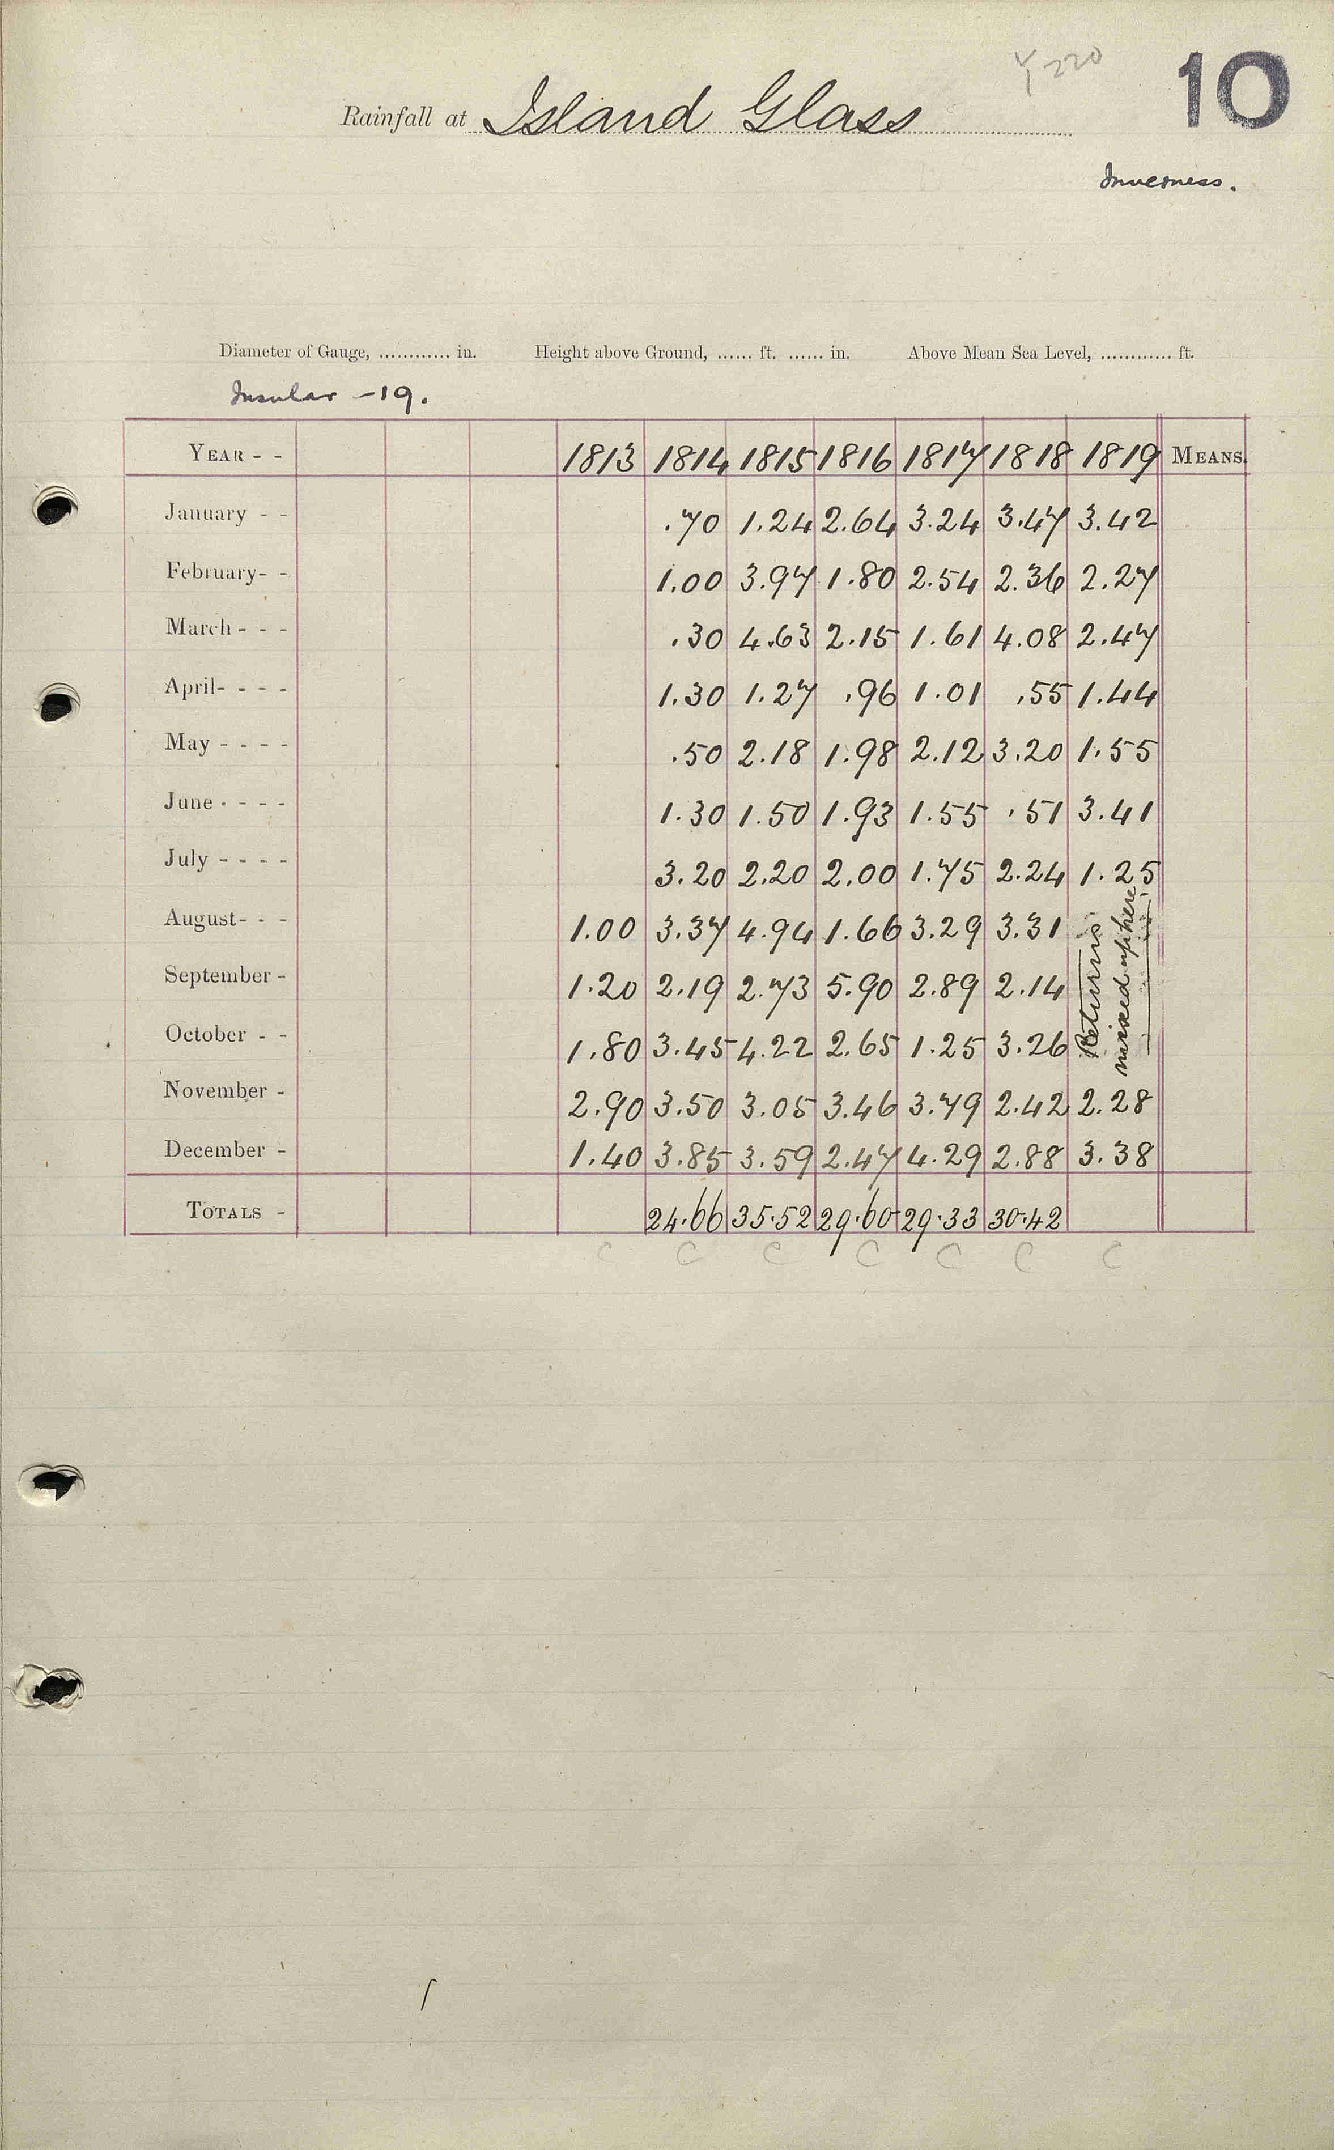 Y 220
10
Rainfall at Island Glass
Inverness.
Diameter of Gauge, ............ in. Height above Ground, ...... ft. ...... in. Above Mean Sea Level, ............ ft.
Insular - 19.
YEAR - - 1813 1814 1815 1816 1817 1818 1819 MEANS.
January - - .70 1.24 2.64 3.24 3.47 3.42
February - - 1.00 3.97 1.80 2.54 2.36 2.27
March - - - .30 4.63 2.15 1.61 4.08 2.47
April - - - - 1.30 1.27 .96 1.01 .55 1.44
May - - - - .50 2.18 1.98 2.12 3.20 1.55
June - - - - 1.30 1.50 1.93 1.55 .51 3.41
July - - - - 3.20 2.20 2.00 1.75 2.24 1.25
August - - - 1.00 3.37 4.94 1.66 3.29 3.31
September - 1.20 2.19 2.73 5.90 2.89 2.14
October - - 1.80 3.45 4.22 2.65 1.25 3.26
Returns
mixed up here
November - 2.90 3.50 3.05 3.46 3.79 2.42 2.28
December - 1.40 3.85 3.59 2.47 4.29 2.88 3.38
TOTALS - 24.66 35.52 29.60 29.33 30.42
C C C C C C C